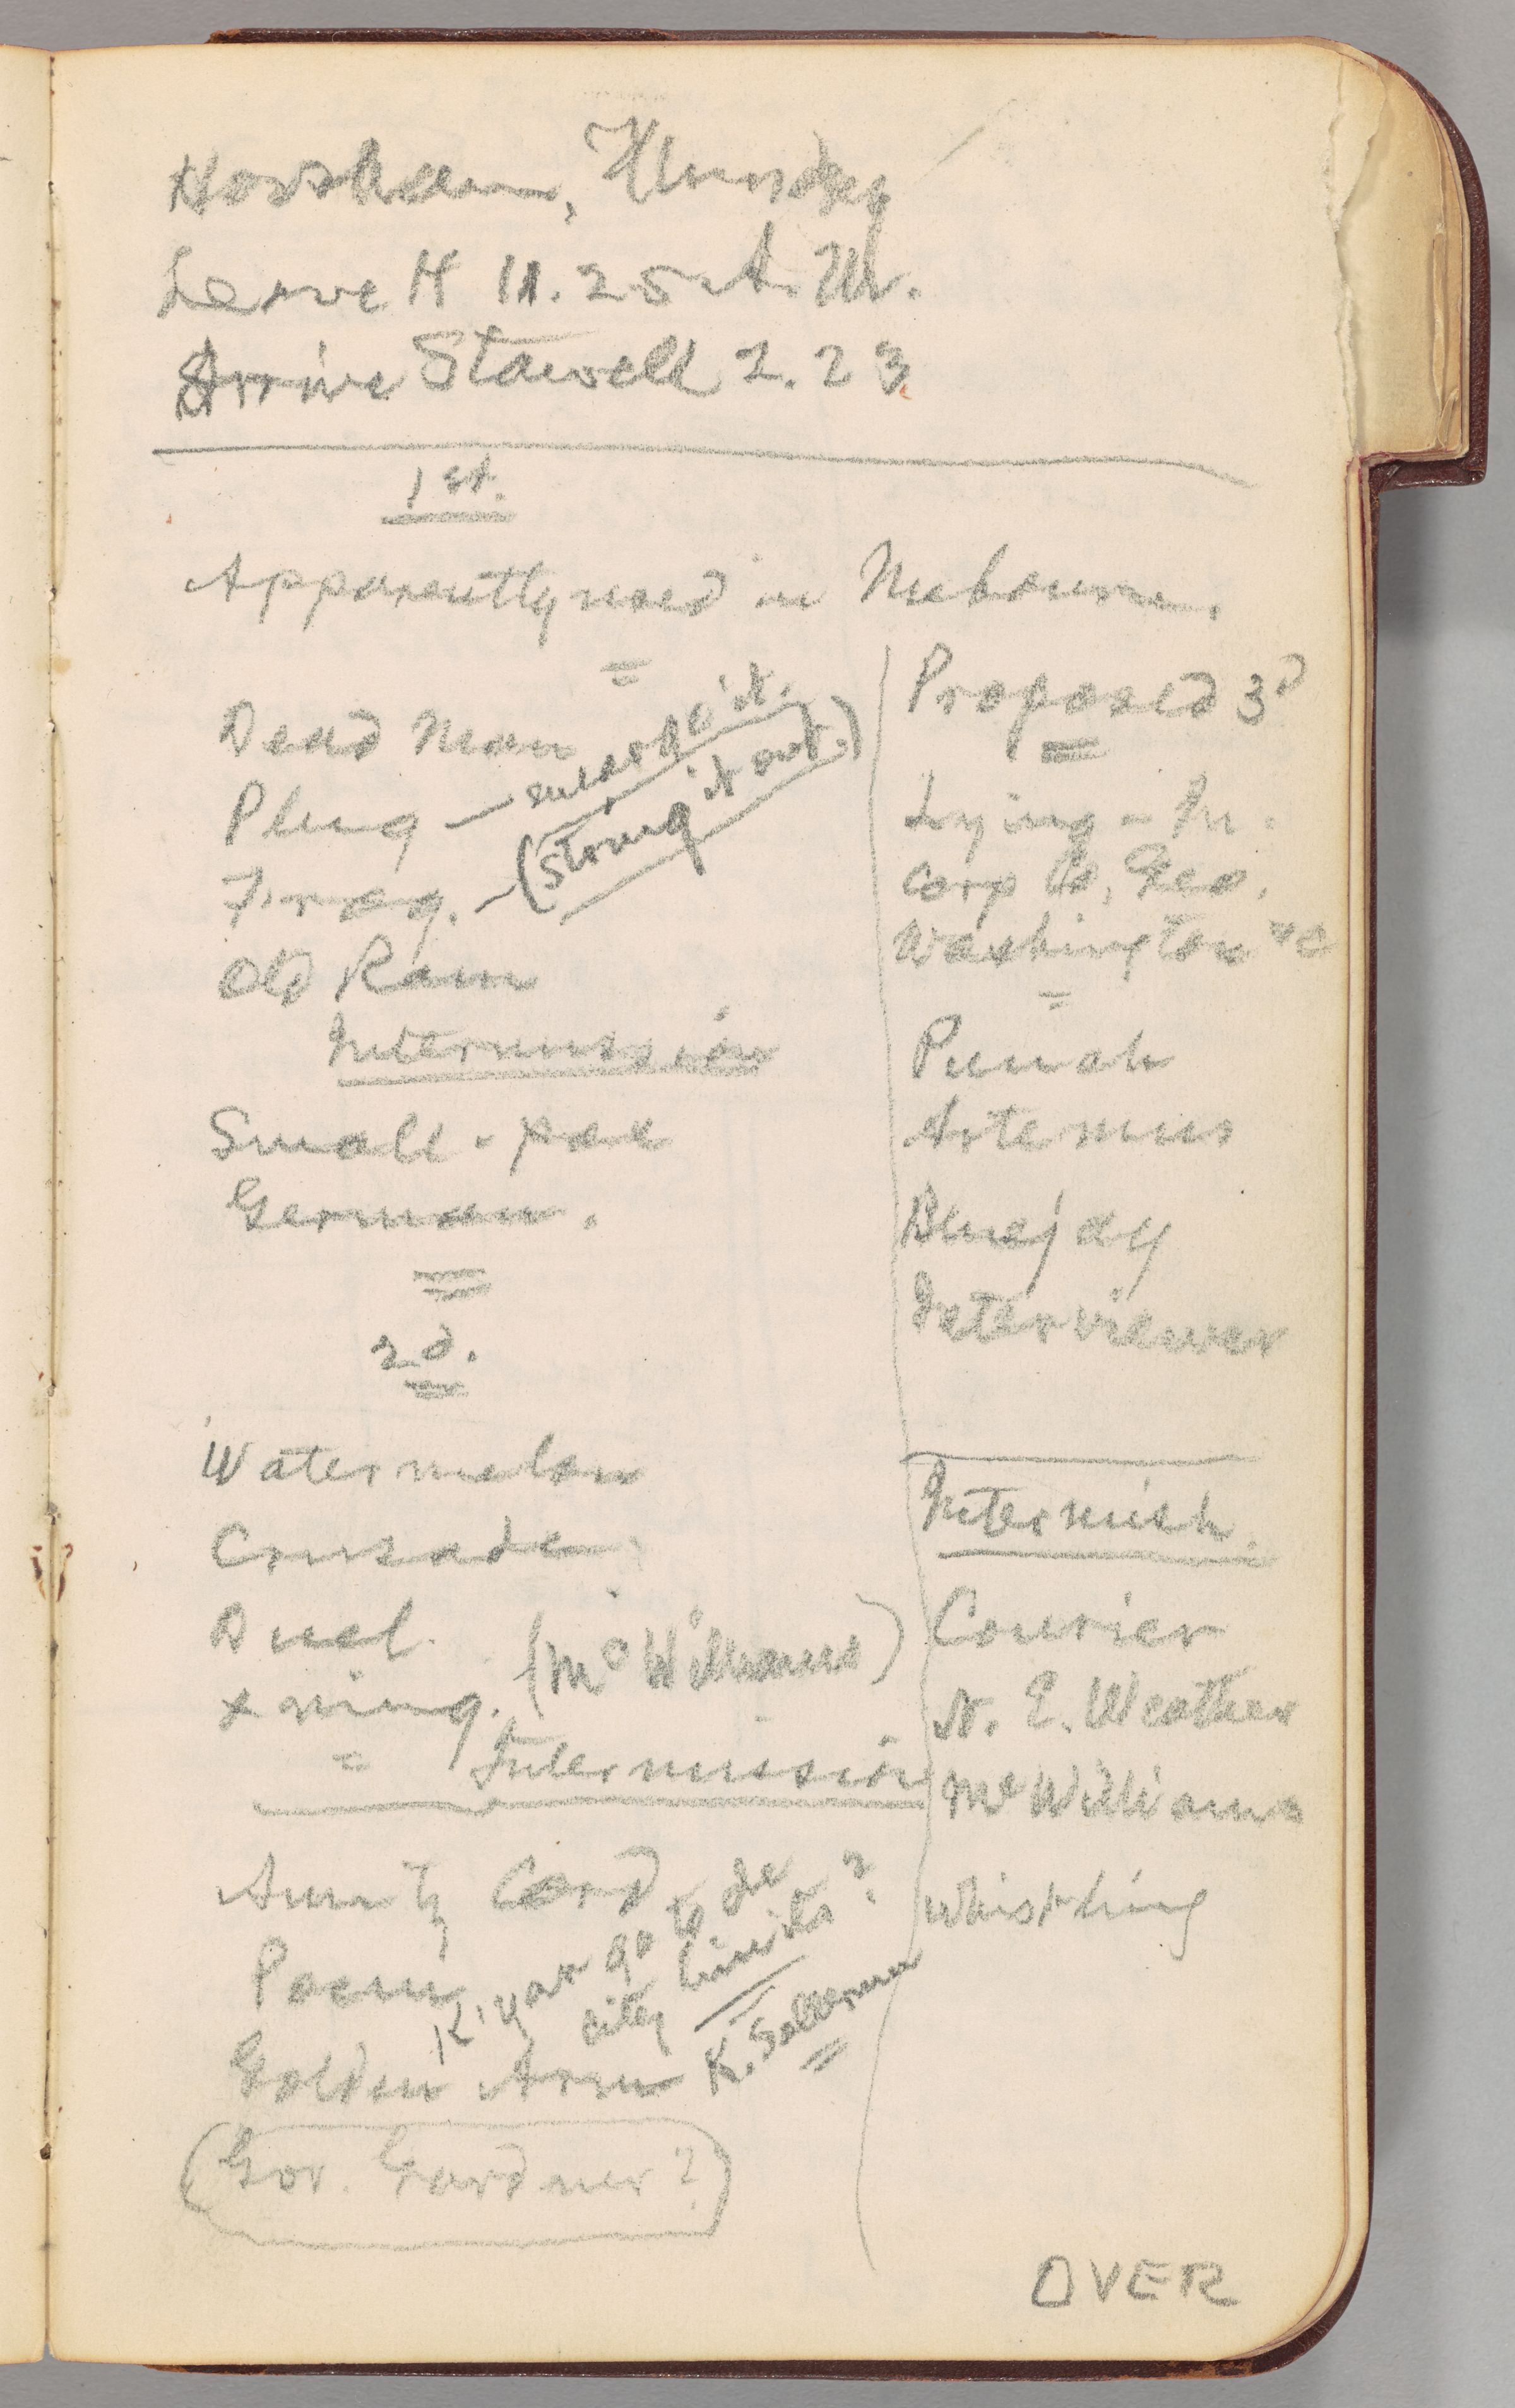 Horsham, Thursday
Leave H 11.25 A.M.
Arrive Stawell 2.23
1st.
Apparently used in Melbourne.
Dead Man
Plug — enlarge it.
Frog. — (String it out.)
Old Ram
Intermission
Small-pox
German.
2d.
Watermelon
Crusade
Duel.
x ning. (McWilliams)
Intermission
Aunty Cord
Poem
K. you go to de
city limits?
K. Sollerman
Golden Arm
(Gov. Gardner?)
Proposed 3d
Lying-In.
Corp to, Geo.
Washington &c
Punch
Artemus
Bluejay
Interviewer
Intermish.
Courier
N. E. Weather
McWilliams
Whistling
OVER